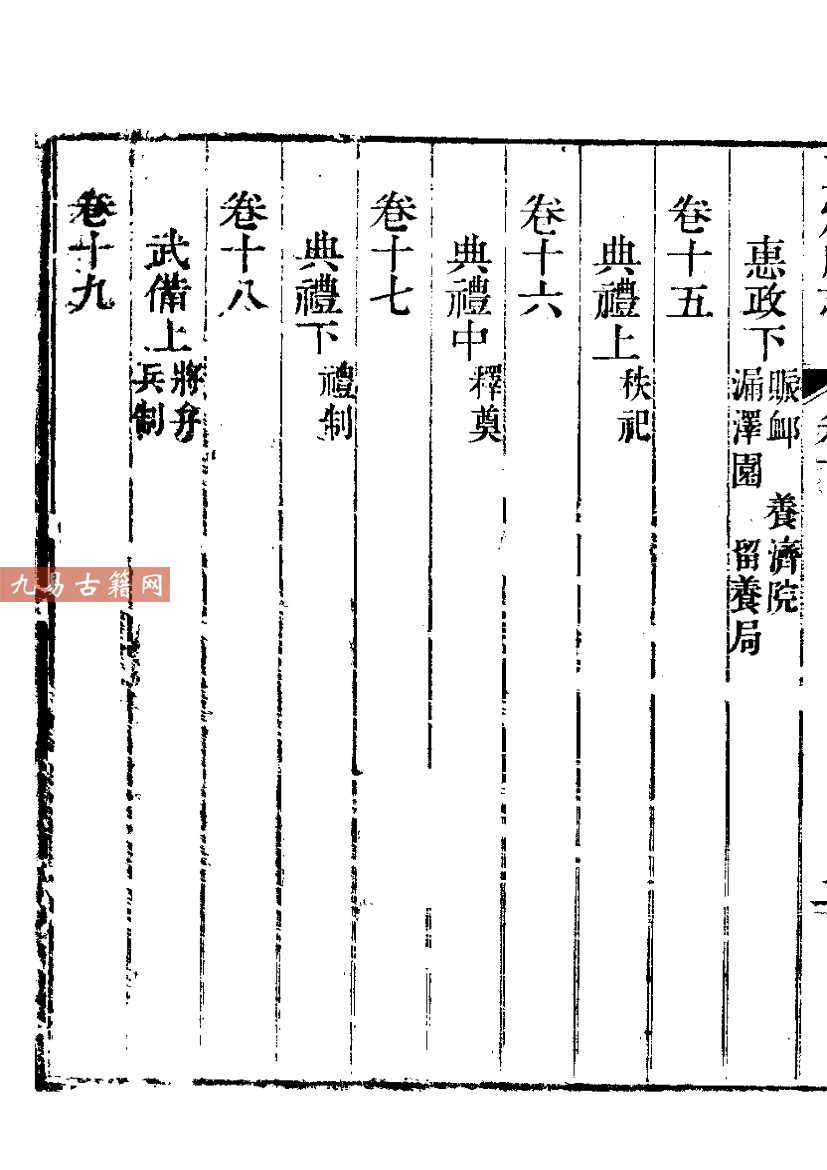 惠政下 賑䘏 養濟院
漏澤園 留養局
卷十五
典禮上 秩祀
卷十六
典禮中 釋奠
卷十七
典禮下 禮制
卷十八
武備上 將弁
兵制
卷十九
九易古籍网